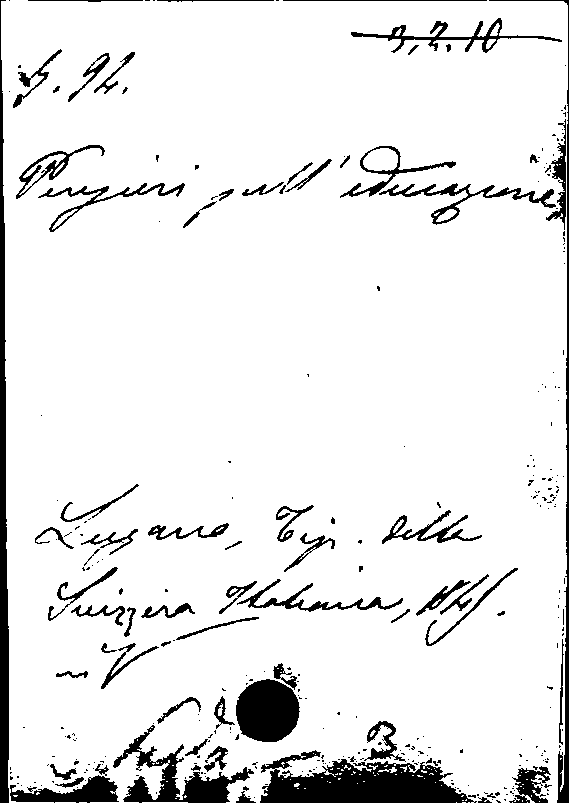 3.2.10
5. 92.
Pensieri sull'educazione
Lugano, Tip. della
Svizzera Italiana, 184
B